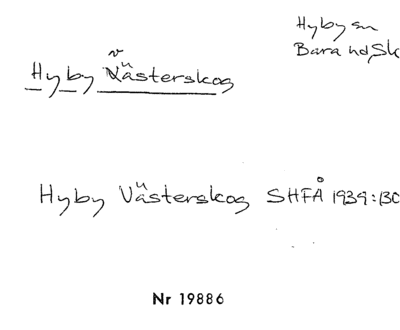 Hyby sn
Bara hd, Sk
v
Hyby Västerskog
Hyby Västerskog SHFÅ 1939:130
Nr 19886